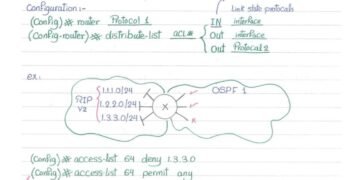 Configuration :-
Link state protocols
(Config)# router Protocol 1
IN interface
(Config-router)# distribute-list ACL#
Out interface
Out Protocol 2
ex.
1.1.1.0/24
OSPF 1
RIP
V2
1.2.2.0/24
X
1.3.3.0/24
(Config)# access-list 64 deny 1.3.3.0
(Config)# access-list 64 permit any